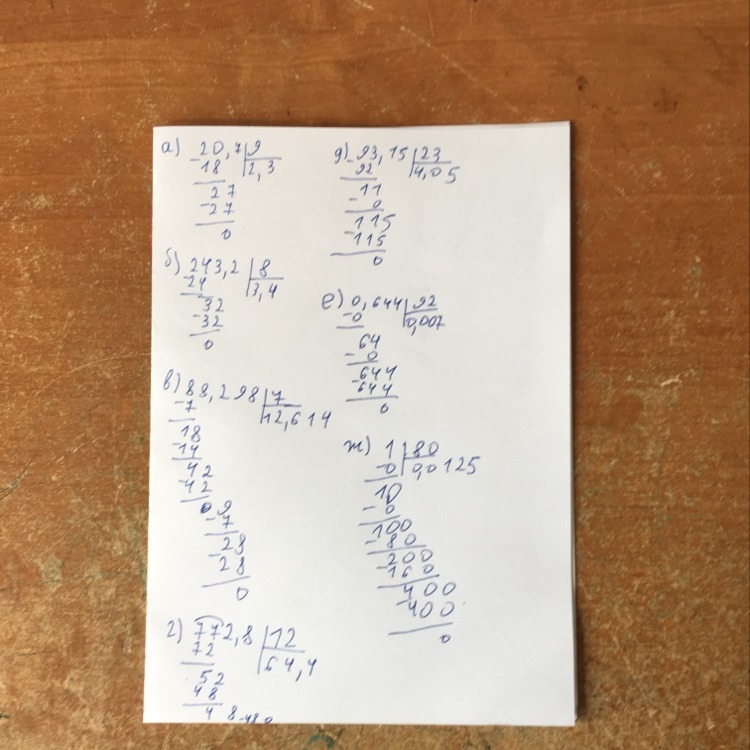 а) 20,7 9
-18 2,3
27
-27
0
б) 243,2 8
-24 3,4
32
-32
0
в) 88,298 7
-7 12,614
18
-14
42
-42
09
-7
28
-28
0
г) 772,8 12
72 64,4
52
48
4 8
д) 93,15 23
-92 4,05
11
-0
115
-115
0
е) 0,644 92
-0 0,007
64
-0
644
-644
0
ж) 1 80
-0 0,0125
10
-0
100
-80
200
-160
400
-400
0